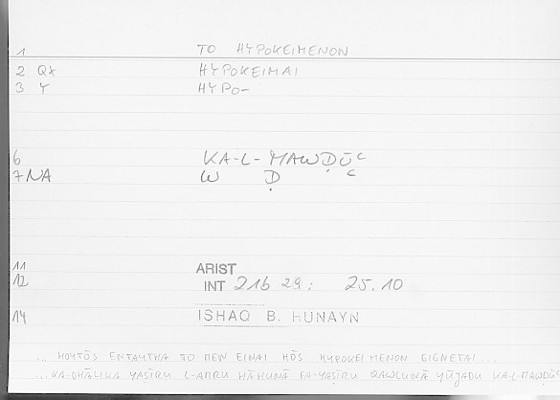 1 TO HYPOKEIMENON
2 QX HYPOKEIMAI
3 Y HYPO-
6 KA-L-MAWḌŪʿ
7 NA W Ḍ ʿ
11 ARIST
12 INT 21b 29: 25.10
14 ISHAQ B. HUNAYN
... HOYTŌS ENTAYTHA TO MEN EINAI HŌS HYPOKEIMENON GIGNETAI...
...KA-DHĀLIKA YAṢĪRU L-AMRU HĀHUNĀ FA-YAṢĪRU QAWLUNĀ YŪJADU KA-L-MAWḌŪʿ